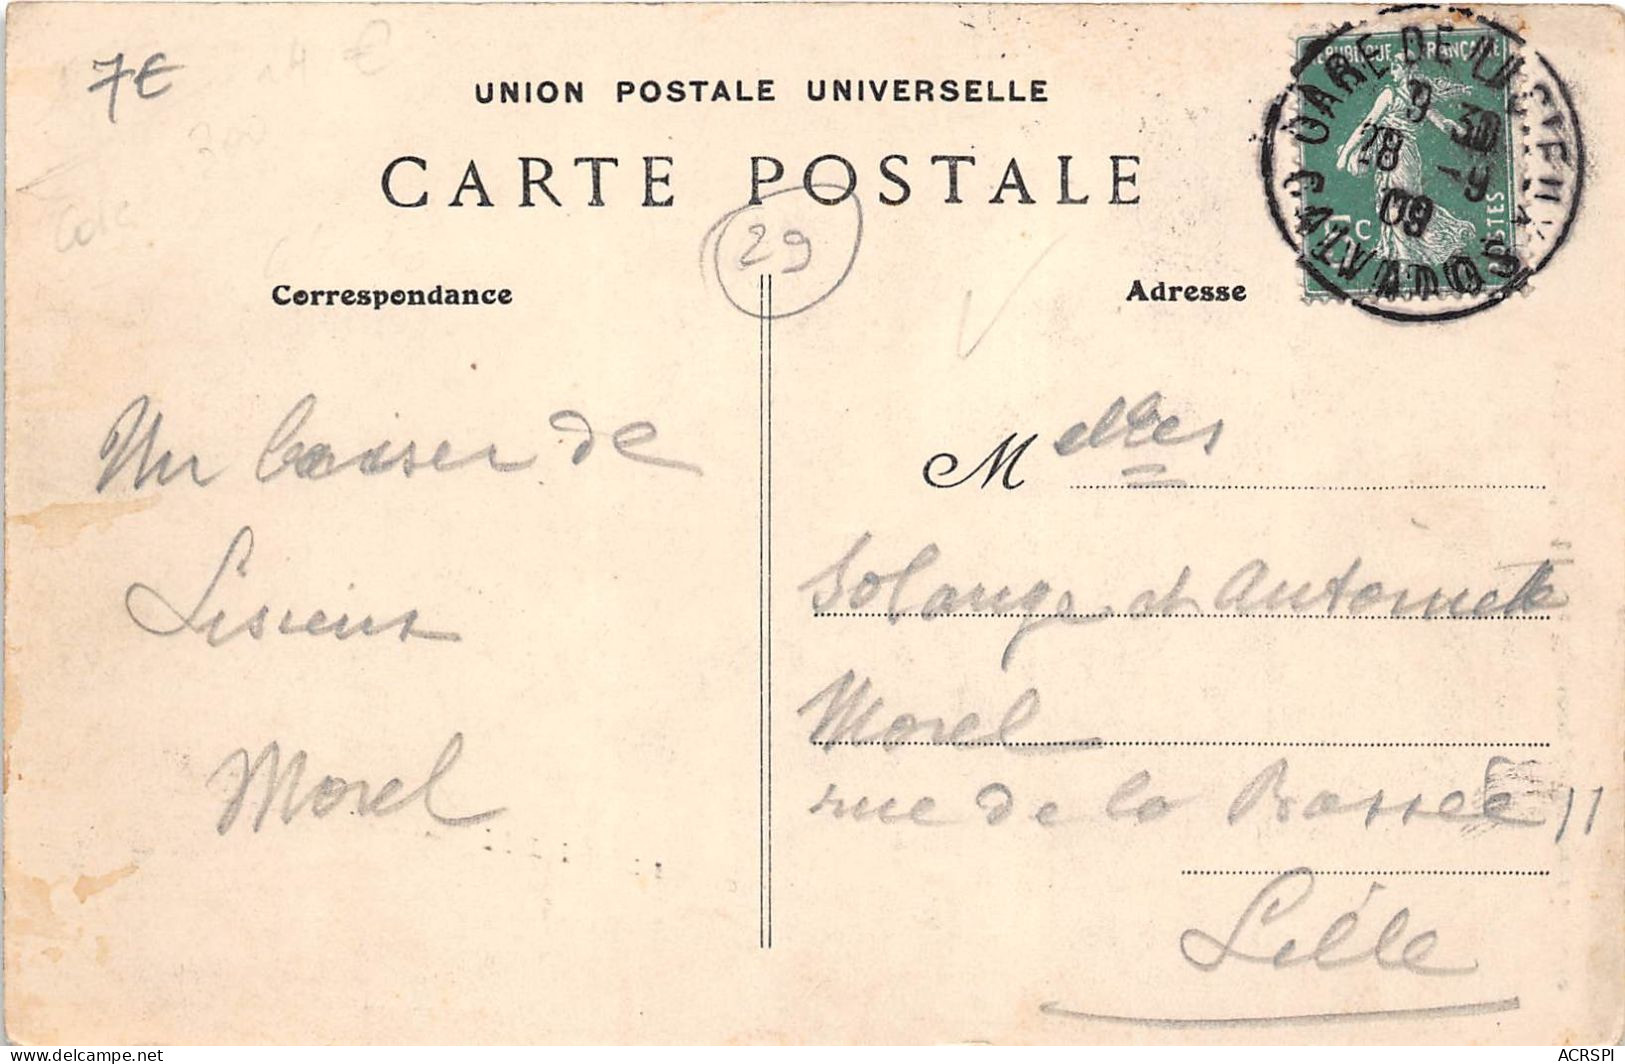 7€
14 €
UNION POSTALE UNIVERSELLE
CARTE POSTALE
29
Correspondance
Adresse
RÉPUBLIQUE FRANÇAISE
5c
POSTES
GARE DE LISIEUX
9 30
28 -9
09
CALVADOS
Un baiser de
Lisieux
Morel
Melles
Solange et Antoinette
Morel
rue de la Bassée 11
Lille
ACRSPI